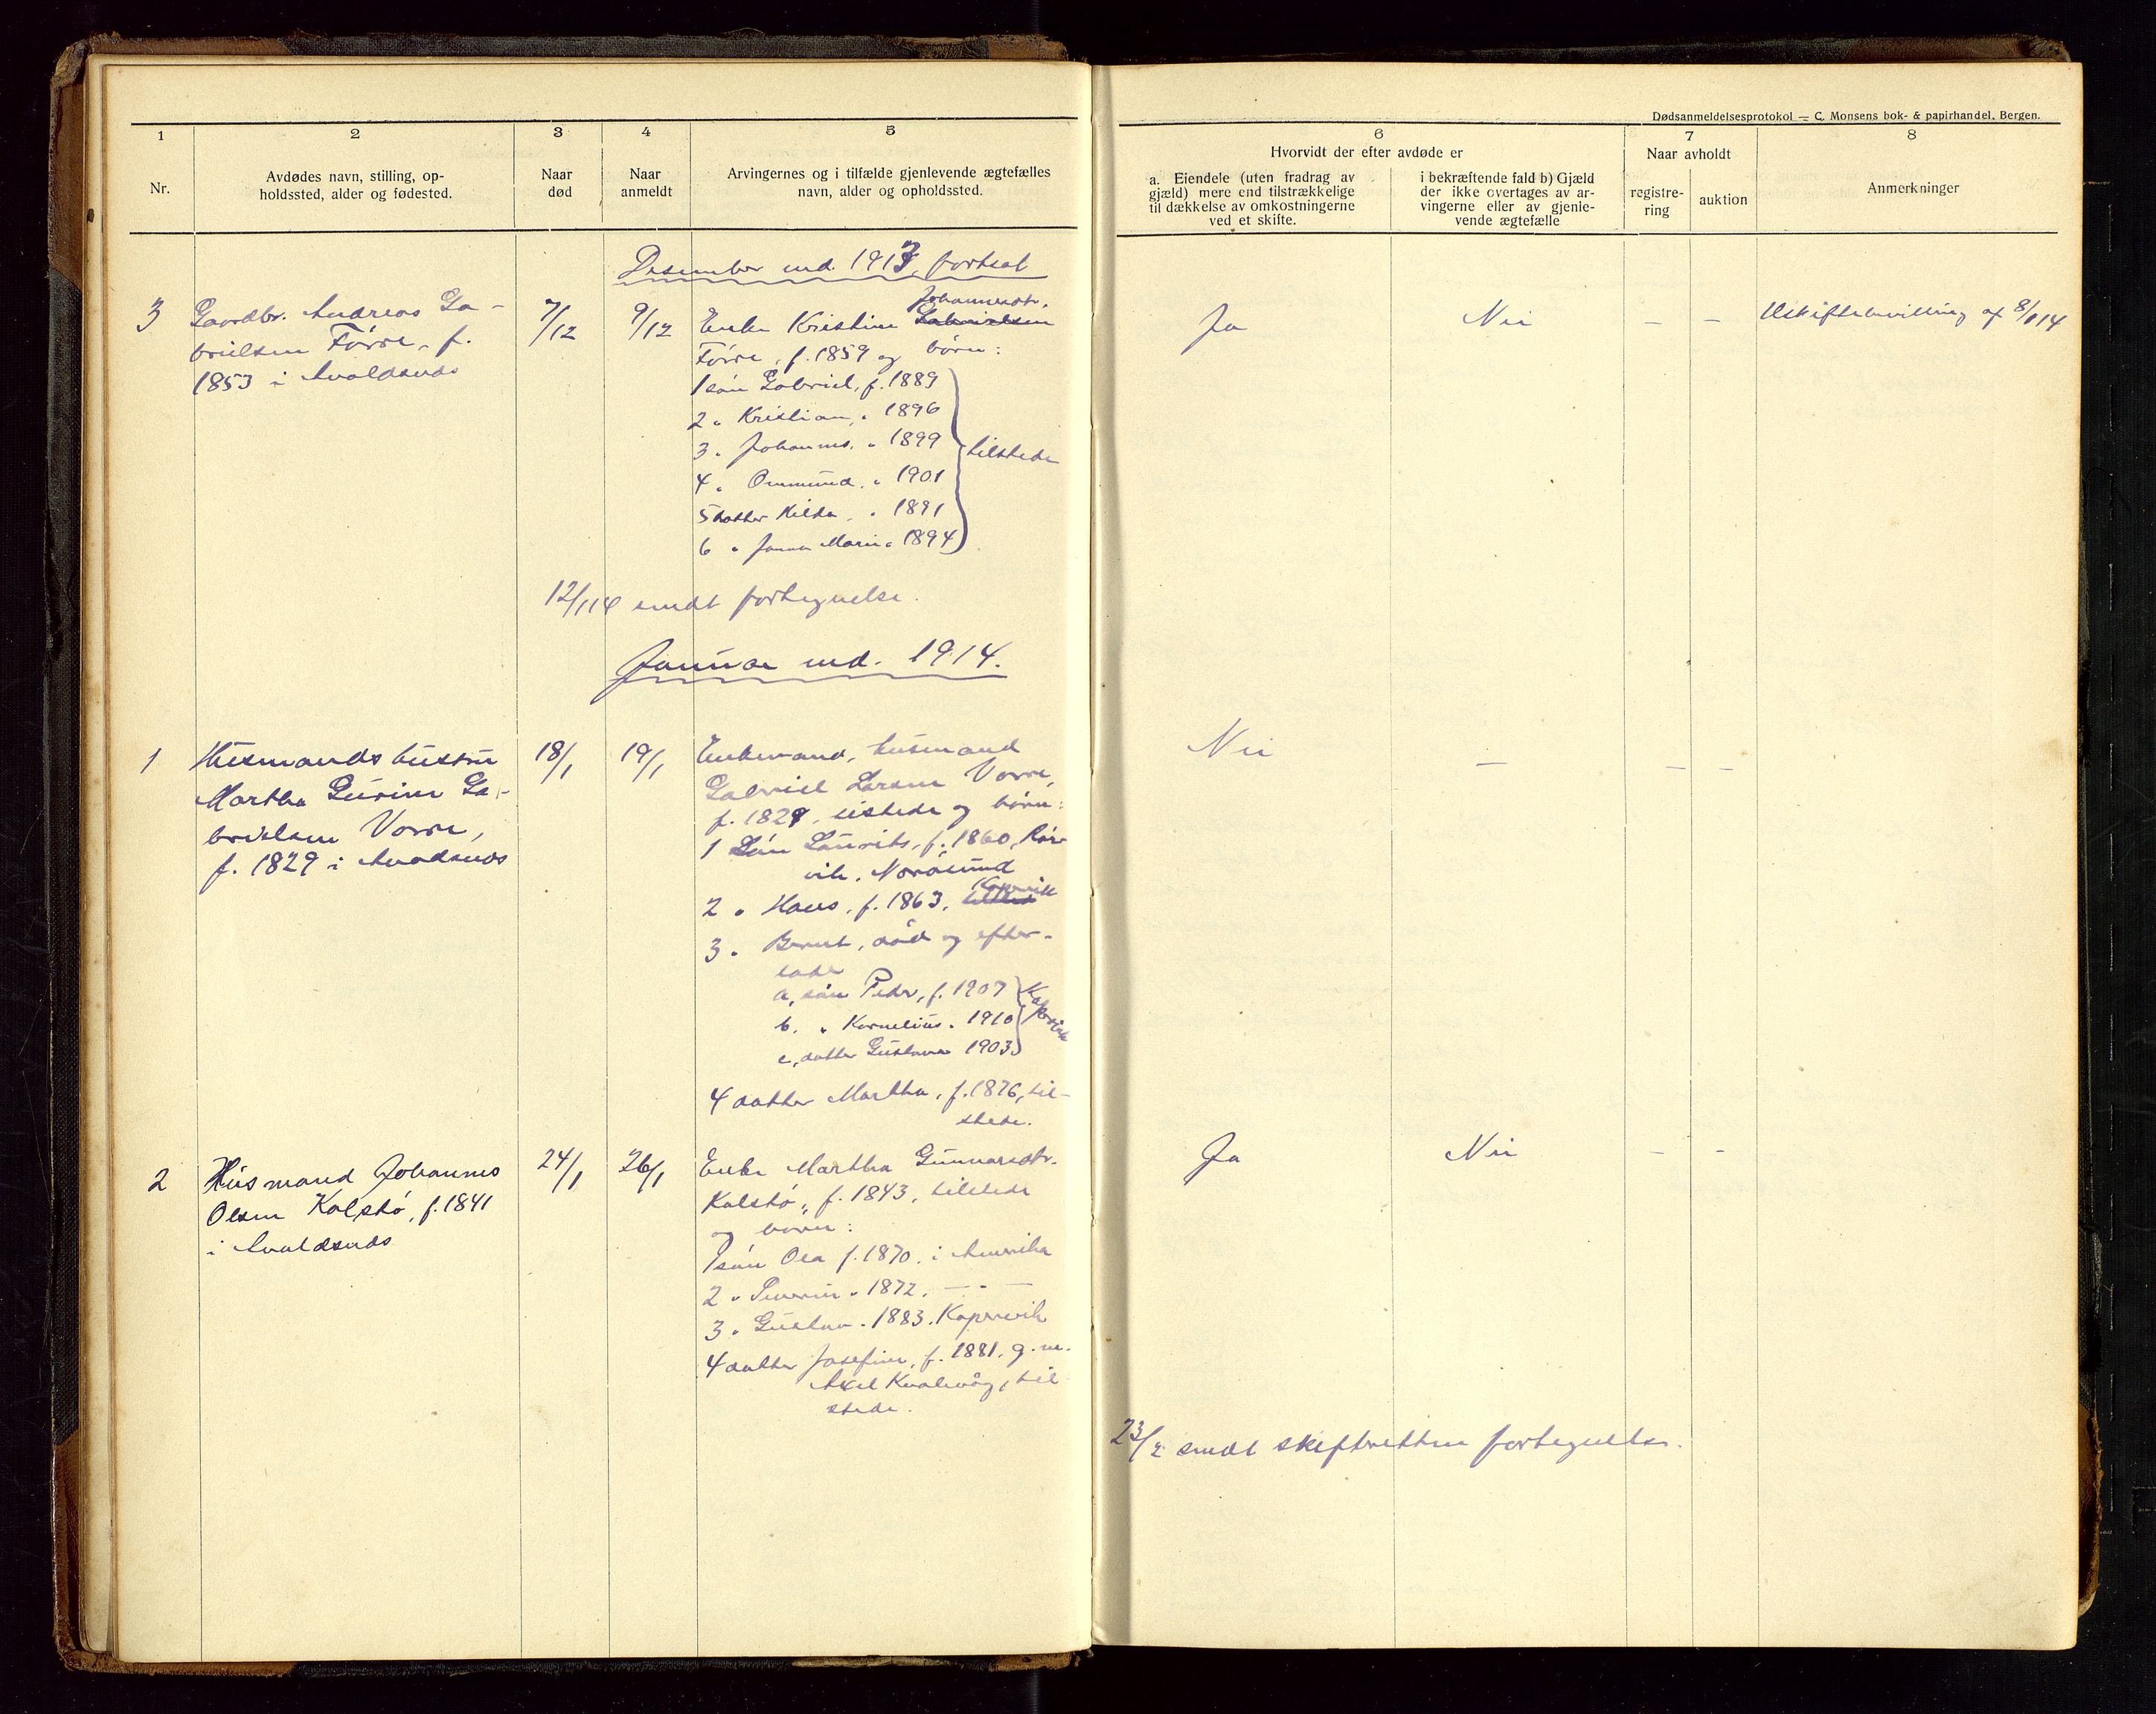 Dødsanmeldelsesprotokol — C. Monsens bok- & papirhandel, Bergen.
1
Nr.
2
Avdødes navn, stilling, op-
holdssted, alder og fødested.
3
Naar
død
4
Naar
anmeldt
5
Arvingernes og i tilfælde gjenlevende ægtefælles
navn, alder og opholdssted.
6
Hvorvidt der efter avdøde er
a. Eiendele (uten fradrag av
gjæld) mere end tilstrækkelige
til dækkelse av omkostningerne
ved et skifte.
i bekræftende fald b) Gjæld
der ikke overtages av ar-
vingerne eller av gjenle-
vende ægtefælle
7
Naar avholdt
registre-
ring
auktion
8
Anmerkninger
Desember md. 1913, fortsat
3
Gaardbr. Andreas Ga-
brielsen Førre, f.
1853 i Avaldsnes
7/12
9/12
Enke Kristine Gabrielsen Johannesdtr.
Førre, f. 1859 og børn:
1 søn Gabriel, f. 1889
2 " Kristian, " 1896
3 " Johannes, " 1899
4 " Ommund, " 1901
5 datter Hilda, " 1891
6 " Janna Marie " 1894
tilstede
Ja
Nei
— —
Uskiftebevilling af 8/1 14
12/1 14 sendt fortegnelse.
Januar md. 1914.
1
Husmands hustru
Martha Gurine Ga-
brielsen Vorre,
f. 1829 i Avadsnes
18/1
19/1
Enkemand, husmand
Gabriel Larsen Vorre,
f. 1829, tilstede og børn:
1 Søn Laurits, f. 1860, Rør-
vik, Norøsund
2 " Hans, f. 1863, Kopervik
3 " Bernt, død og efter-
lader
a, søn Peder, f. 1907
b, " Kornelius " 1910
c, datter Gustava 1903
Kopervik
4 datter Martha, f. 1876, til-
stede.
Nei
—
— —
2
Husmand Johannes
Olsen Kalstø, f. 1841
i Avaldsnes
24/1
26/1
Enke Martha Gunnarsdtr.
Kalstø, f. 1843, tilstede
og børn:
1 søn Ola f. 1870, i Amerika
2 " " 1872, — " —
3 " Gustav " 1883, Kopervik
4 datter Josefine, f. 1881, g. m.
Axel Kvalevåg, til
stede.
Ja
Nei
— —
23/2 sendt skifteretten fortegnelse.